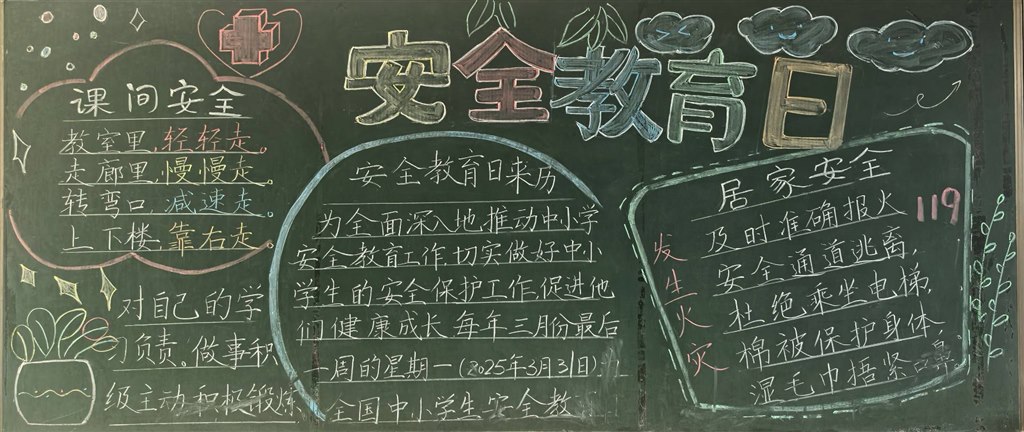 安全教育日
课间安全
教室里,轻轻走。
走廊里,慢慢走。
转弯口,减速走。
上下楼,靠右走。
对自己的学
习负责。做事积
级主动和极锻炼
安全教育日来历
为全面深入地推动中小学
安全教育工作切实做好中小
学生的安全保护工作,促进他
们健康成长,每年三月份最后
一周的星期一(2025年3月31日)
全国中小学生安全教
居家安全
发生火灾
119
及时准确报火
安全通道逃离,
杜绝乘坐电梯,
棉被保护身体
湿毛巾捂紧口鼻